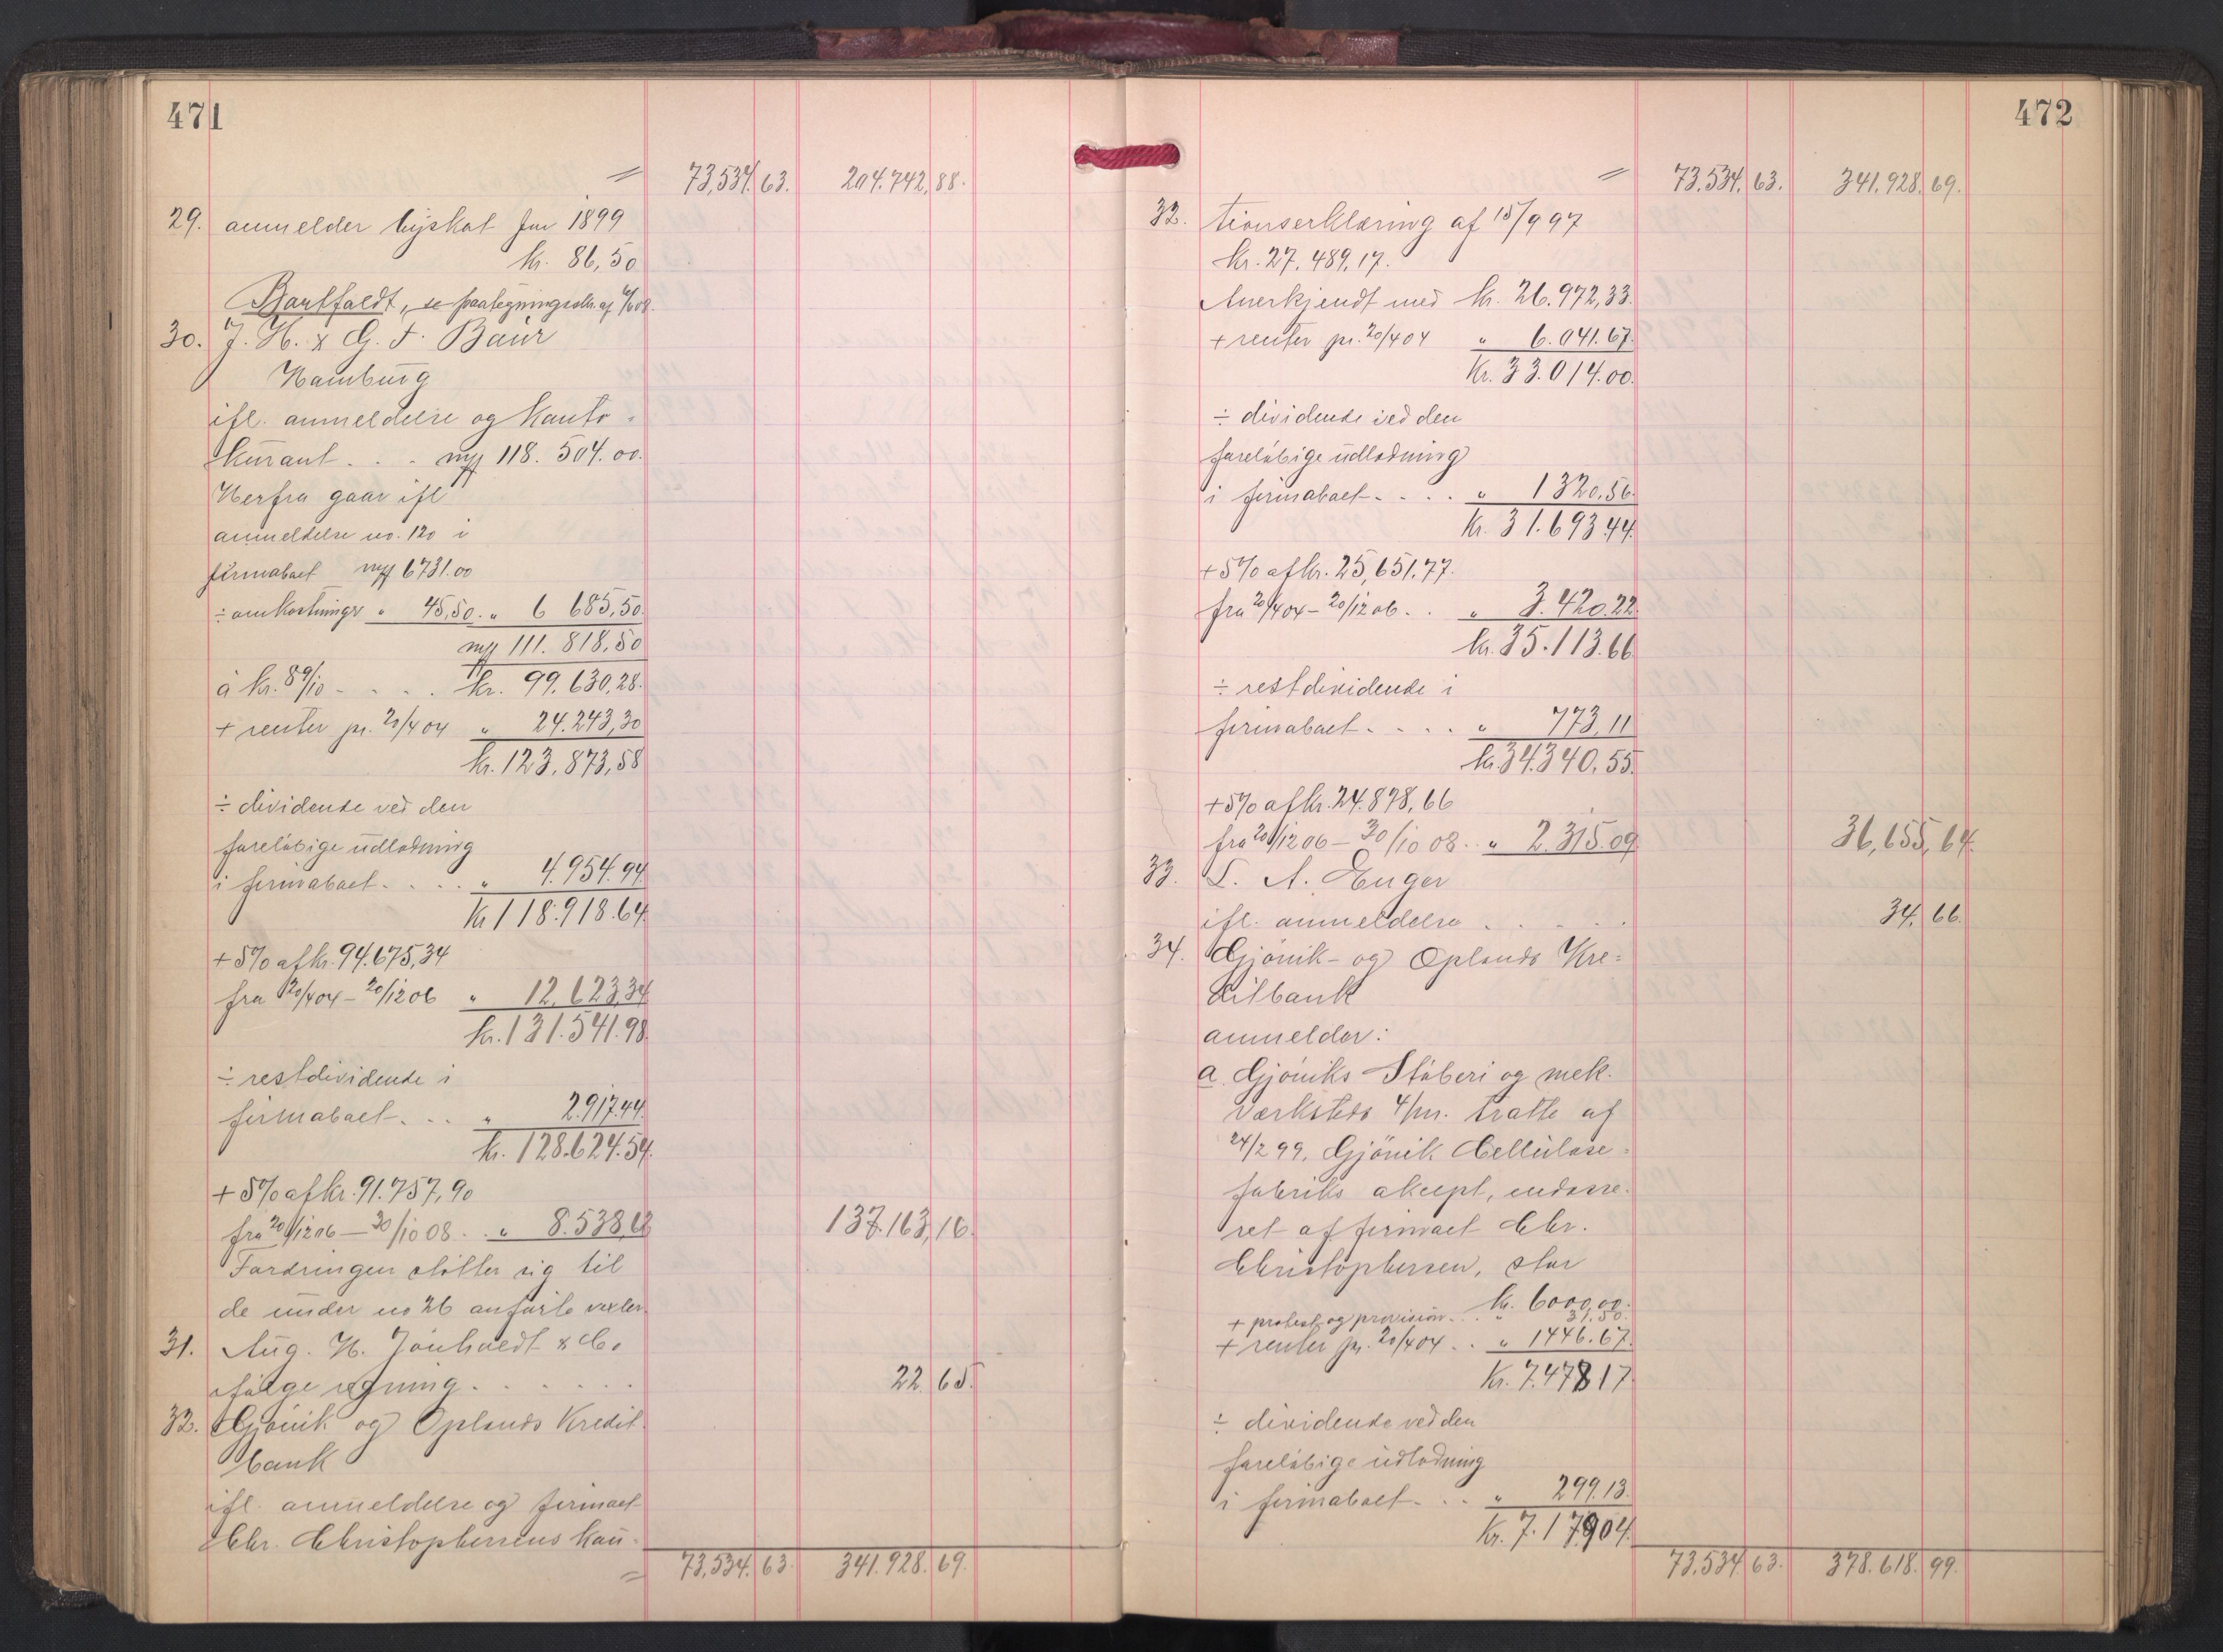 471
〃 73,534.63. 204.742,88.
29. anmelder byskat for 1899
kr. 86,50
Bortfaldt, se paategningsdkr. af
30. J. H. & G. F. Baür
Hambürg
ifl. anmeldelse og Konto-
kürant . . . 118.504.00.
Herfra gaar ifl
anmeldelse no. 120 i
firmaboet 6731.00
÷ omkostninger „ 45,50. „ 6 685,50.
111.818,50
à kr. 89/10 - . . . kr. 99.630,28.
+ renter pr. 20/4 04 „ 24.243,30
kr. 123.873,58
÷ dividende ved den
foreløbige üdlodning
i firmaboet . . . . „ 4.954.94.
Kr 118.918.64.
+ 5% af kr. 94.675,34
fra 20/4 04 - 20/12 06 „ 12.623,34
kr. 131.541.98.
÷ restdividende i
firmaboet . . . „ 2.917.44.
kr. 128.624.54.
+ 5% af kr. 91.757,90
fra 20/12 06 - 30/10 08 . . „ 8.538,62 137.163,16.
Fordringen støtter sig til
de ünder no 26 anførte vexler.
31. Aüg. H. & Co
ifølge regning . . . . . . 22.65.
32. Gjövik og Oplands Kredit-
bank
ifl. anmeldelse og firmaet
Chr. Christophersens kaü-
〃 73,534.63. 341.928.69.
472
〃 73.534.63. 341.928.69.
32. tionserklæring af 15/9 97
kr. 27.489,17.
Anerkjendt med kr. 26.972,33.
+ renter pr. 20/4 04 „ 6.041.67.
Kr. 33.014.00.
÷ dividende ved den
foreløbige üdlodning
i firmaboet . . . . „ 1320,56.
Kr. 31.693.44.
+ 5% af kr. 25,651.77.
fra 20/4 04 - 20/12 06 . . „ 3.420.22.
kr. 35.113.66
÷ restdividende i
firmaboet . . . . „ 773,11
kr. 34.340,55.
+ 5% af kr. 24.878,66
fra 20/12 06 - 30/10 08 . . „ 2.315.09. 36,655,64.
33. L. A. Enger
ifl. anmeldelse . . . . . 34.66.
34. Gjövik- og Oplands Kre-
ditbank
anmelder:
a. Gjöviks Støberi og mek.
Værksteds 4/m. tratte af
24/2 99, Gjövik Cellülose-
fabriks aksept, endosse-
ret af firmaet Chr.
Christophersen, stor
kr. 6000,00.
+ protest og provision . . . „ 31.50.
+ renter pr. 20/4 04 . . „ 1446.67.
Kr. 7.478 17.
÷ dividende ved den
foreløbige üdlodning
i firmaboet . . . „ 299.13.
Kr. 7.179 04.
73,534.63. 378.618.99.